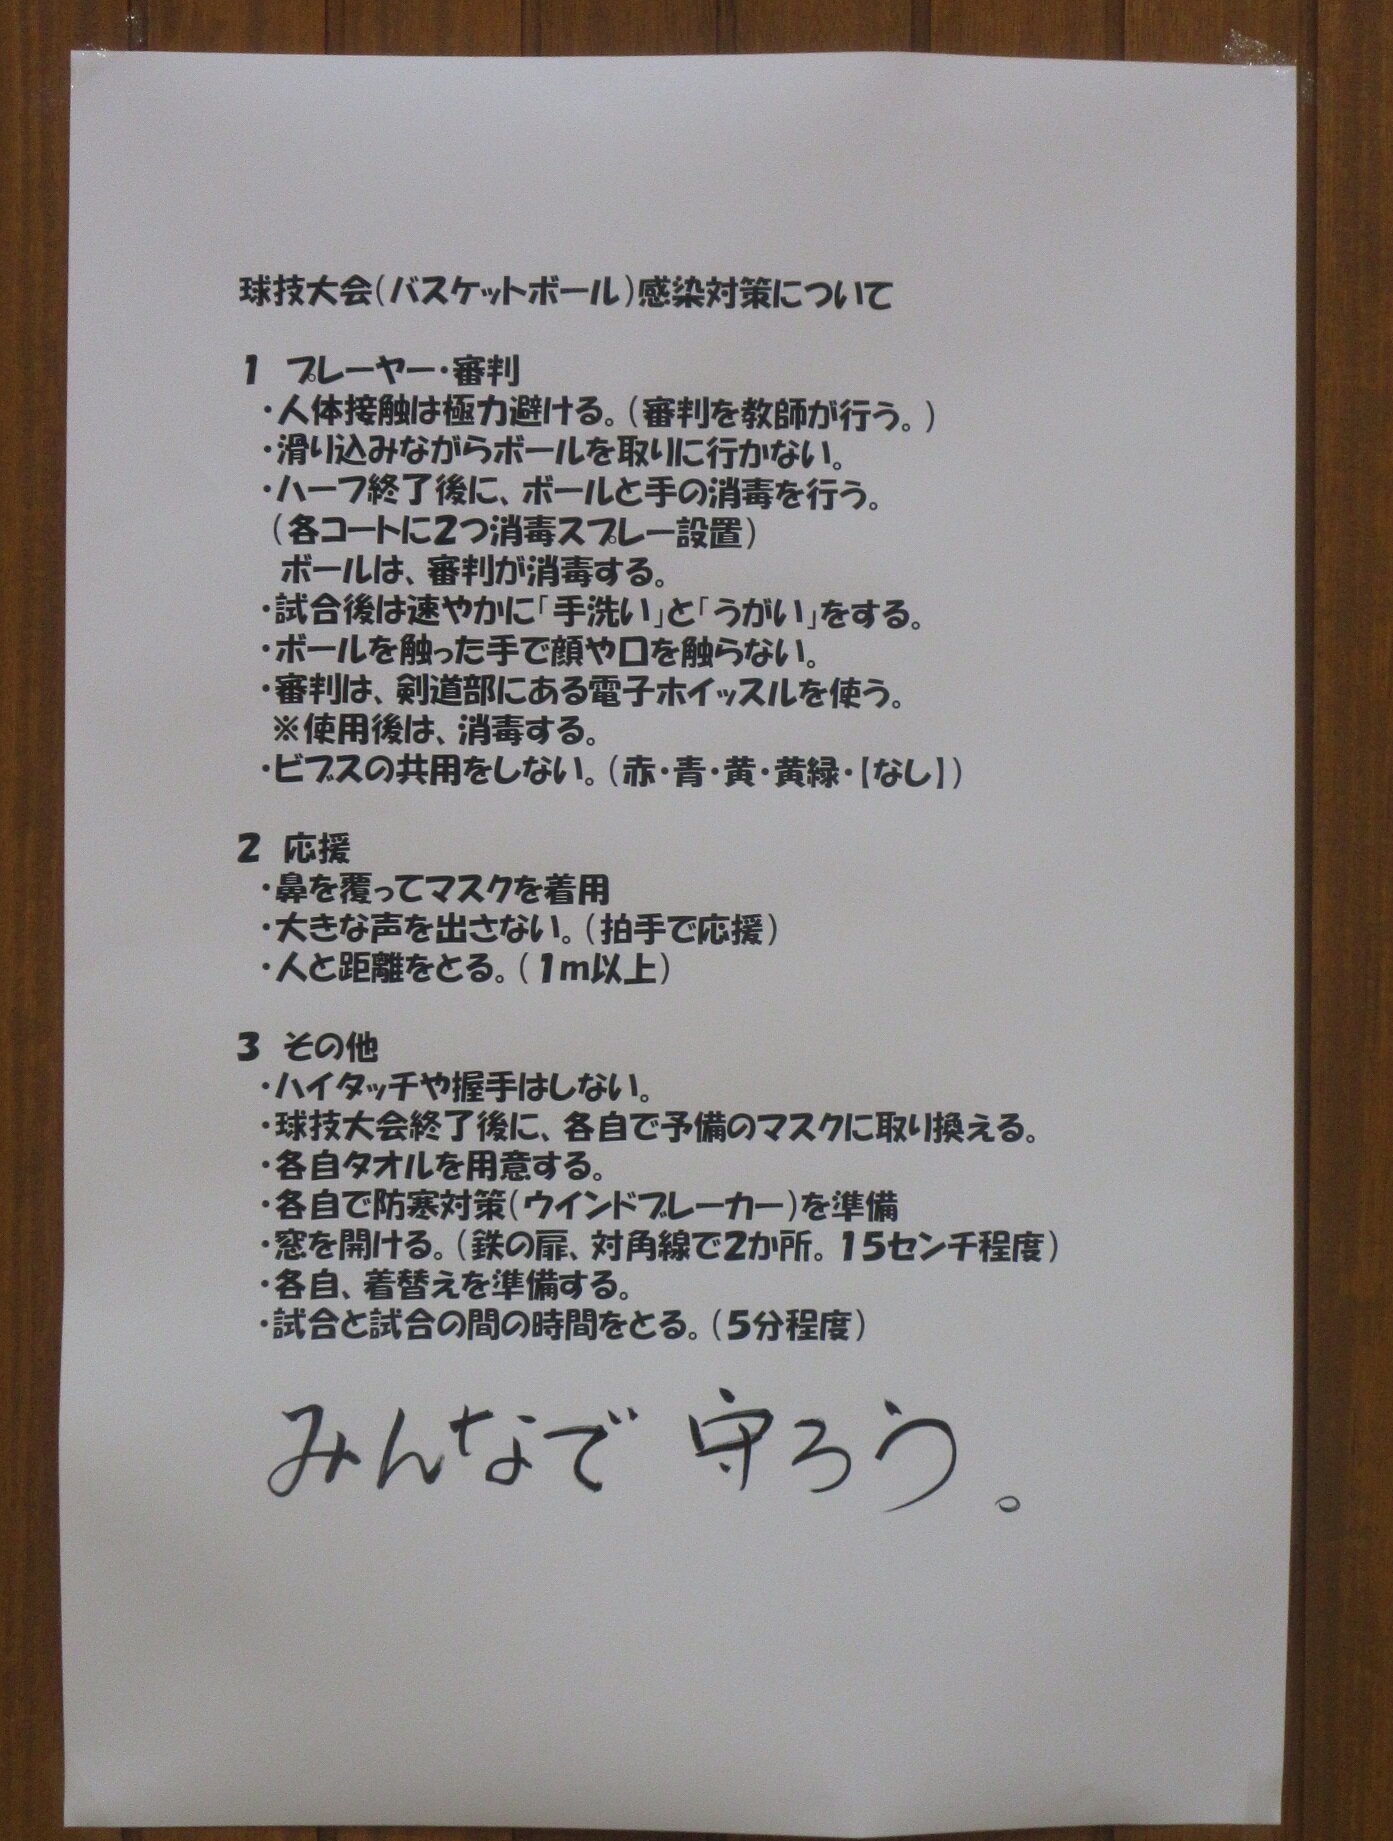 球技大会（バスケットボール）感染対策について
1　プレーヤー・審判
・人体接触は極力避ける。（審判を教師が行う。）
・滑り込みながらボールを取りに行かない。
・ハーフ終了後に、ボールと手の消毒を行う。
（各コートに2つ消毒スプレー設置）
ボールは、審判が消毒する。
・試合後は速やかに「手洗い」と「うがい」をする。
・ボールを触った手で顔や口を触らない。
・審判は、剣道部にある電子ホイッスルを使う。
※使用後は、消毒する。
・ビブスの共用をしない。（赤・青・黄・黄緑・【なし】）
2　応援
・鼻を覆ってマスクを着用
・大きな声を出さない。（拍手で応援）
・人と距離をとる。（1m以上）
3　その他
・ハイタッチや握手はしない。
・球技大会終了後に、各自で予備のマスクに取り換える。
・各自タオルを用意する。
・各自で防寒対策（ウインドブレーカー）を準備
・窓を開ける。（鉄の扉、対角線で2か所。15センチ程度）
・各自、着替えを準備する。
・試合と試合の間の時間をとる。（5分程度）
みんなで 守ろう。